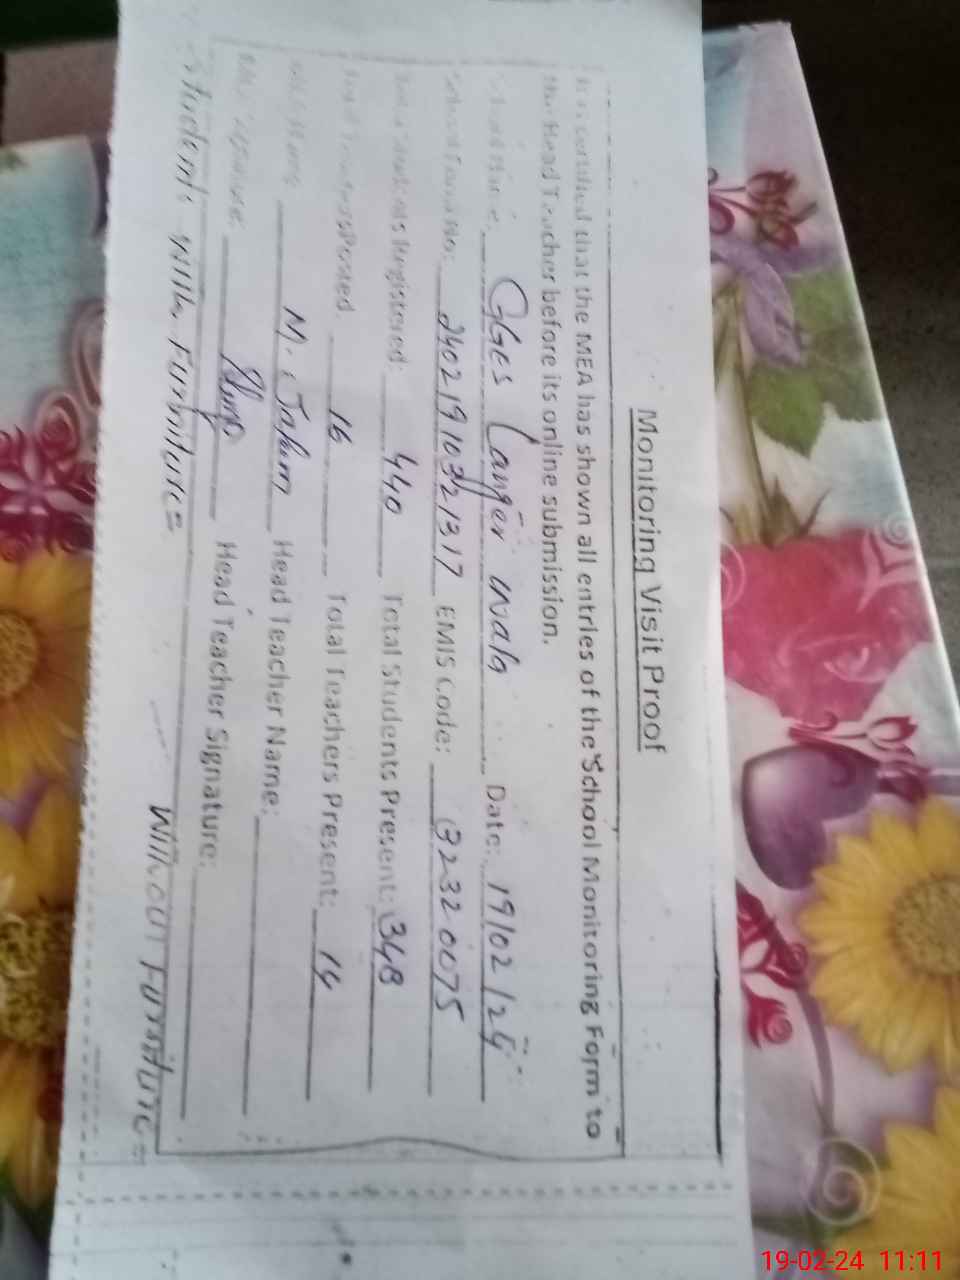 Monitoring Visit Proof
It is certified that the MEA has shown all entries of the School Monitoring Form to
the Head Teacher before its online submission.
School Name: GGES Langer wala Date: 19/02/24
School Form No: 24021910321317 EMIS Code: 32320075
Total Students Registered: 440 Total Students Present: 348
Total Teachers Posted: 16 Total Teachers Present: 14
MEA Name: M. Head Teacher Name:
MEA Signature: Head Teacher Signature:
Students With Furniture= Without Furniture=
19-02-24 11:11